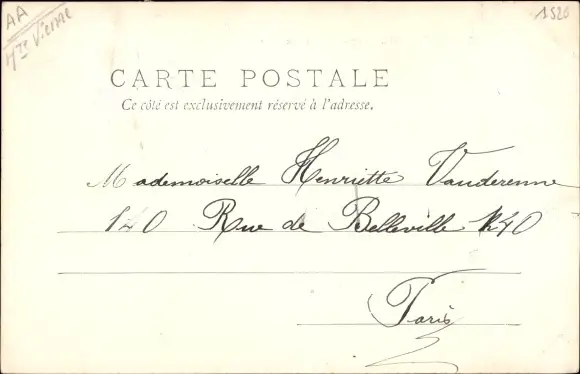 AA
Hte Vienne
1520
CARTE POSTALE
Ce côté est exclusivement réservé à l'adresse.
Mademoiselle Henriette Vauderenne
140 Rue de Belleville 140
Paris